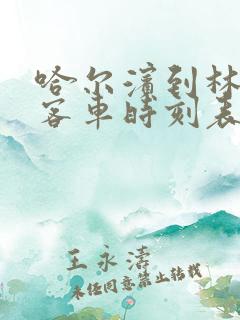 哈尔滨到林
客车时刻表
王永涛
未经同意禁止转载